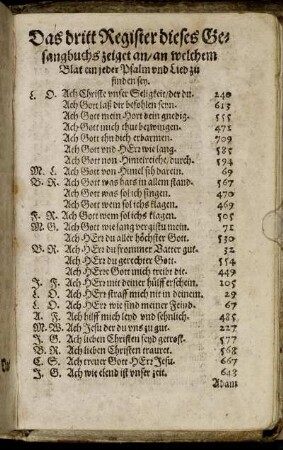 Das dritt Register dieses Ge-
sangbuchs zeiget an/ an welchem
Blat ein jeder Psalm vnd Lied zu
finden sey.
L. O. Ach Christe vnser Seligkeit/ der du. 240
Ach Gott laß dir befohlen seyn. 613
Ach Gott mein Hort dein gnedig. 555
Ach Gott mich thut bezwingen. 471
Ach Gott thu dich erbarmen. 709
Ach Gott vnd HErr wie lang. 585
Ach Gott von Himelreiche/ durch. 594
M. L. Ach Gott von Himel sih darein. 69
B. R. Ach Gott was hats in allem stand. 567
Ach Gott was sol ich singen. 470
Ach Gott wem sol ichs klagen. 469
F. R. Ach Gott wem sol ichs klagen. 505
M G. Ach Gott wie lang vergistu mein. 71
Ach HErr du aller höchster Gott. 530
V. R. Ach HErr du frommer Vatter gut. 32
Ach HErr du gerechter Gott. 554
Ach HErre Gott mich treibt die. 449
J. F. Ach HErr mit deiner hülff erschein. 105
L. O. Ach HErr straff mich nit in deinem. 29
L. O. Ach HErr wie sind meiner Feind. 67
A. F. Ach hilff mich leyd vnd sehnlich. 485
M. W. Ach Jesu der du vns zu gut. 227
J. G. Ach lieben Christen seyd getrost. 577
B. R. Ach lieben Christen trauret. 568
C. S. Ach trewer Gott HErr Jesu. 667
J. G. Ach wie elend ist vnser zeit. 643
Adam